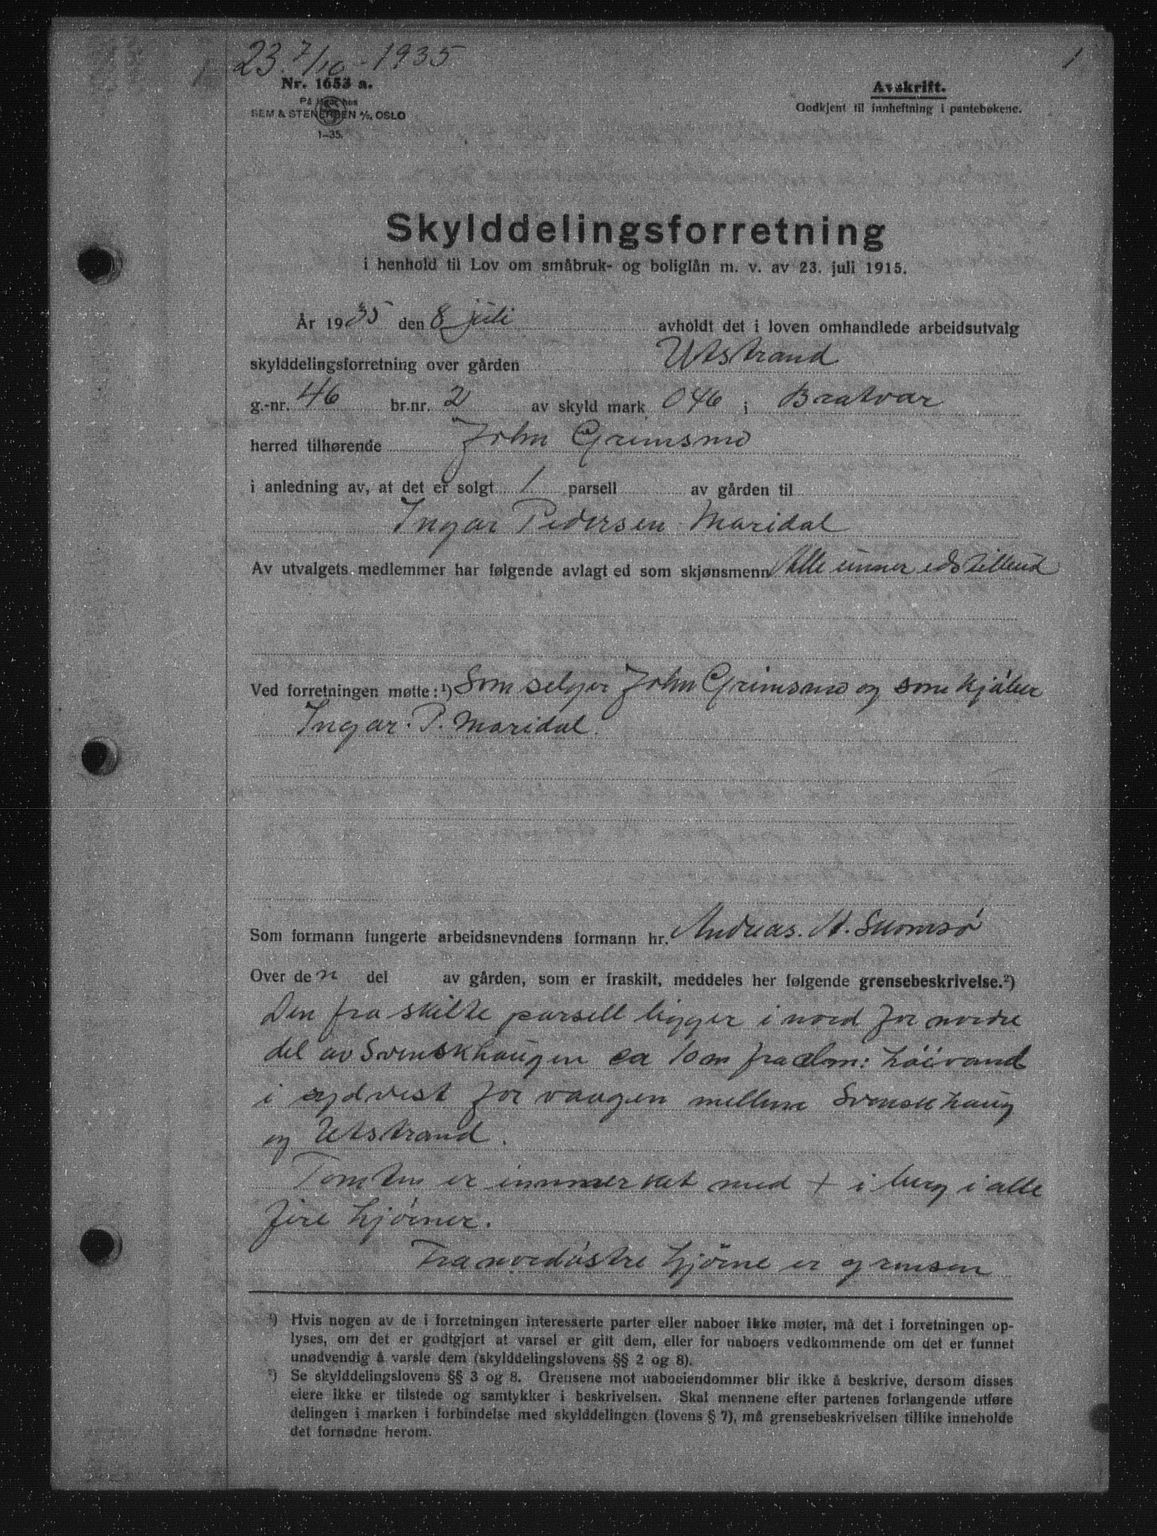 23. 7/10 - 1935
1
Nr. 1653 a.
På lager hos
SEM & STENERSEN A/S, OSLO
1-35.
Avskrift.
Godkjent til innheftning i pantebøkene.
Skylddelingsforretning
i henhold til Lov om småbruk- og boliglån m. v. av 23. juli 1915.
År 1935 den 8 juli avholdt det i loven omhandlede arbeidsutvalg
skylddelingsforretning over gården Utstrand
g.-nr. 46 br.nr. 2 av skyld mark 046 i Bratvær
herred tilhørende John Grimsmo
i anledning av, at det er solgt 1 parsell av gården til
Ingar Pedersen Maridal
Av utvalgets medlemmer har følgende avlagt ed som skjønsmenn Alle unner
Ved forretningen møtte: 1) Som selger John Grimsmo og som kjøber
Ingar. P. Maridal.
Som formann fungerte arbeidsnevndens formann hr. Andreas. A.
Over den del av gården, som er fraskilt, meddeles her følgende grensebeskrivelse.2)
Den fraskilte parsell ligger i nord for nordre
del av Svenskhaugen ca 10 m fra alm: höivand
i sydvest for vaagen mellem Svenskhaug
og Utstrand.
Tomten er innmerket med + i berg i alle
fire hjørner.
Fra nordöstre hjørne er grensen
1) Hvis nogen av de i forretningen interesserte parter eller naboer ikke møter, må det i forretningen op-
lyses, om det er godtgjort at varsel er gitt dem, eller for naboers vedkommende om det er funnet
unødvendig å varsle dem (skylddelingslovens §§ 2 og 8).
2) Se skylddelingslovens §§ 3 og 8. Grensene mot naboeiendommer blir ikke å beskrive, dersom disses
eiere ikke er tilstede og samtykker i beskrivelsen. Skal mennene efter partenes forlangende utføre
delingen i marken i forbindelse med skylddelingen (lovens § 7), må grensebeskrivelsen tillike inneholde
det fornødne herom.